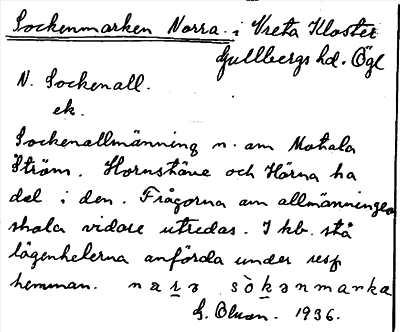 Sockenmarken Norra i Vreta Kloster
Gullbergs hd. Ögl
N. Sockenall.
ek.
Sockenallmänning n. om Motala
Ström. Hornstäve och Härna ha
del i den. Frågorna om allmänningen
skola vidare utredas. I kb. stå
lägenheterna anförda under resp
hemman. nɑrə sòkənmarka
G. Olson. 1936.